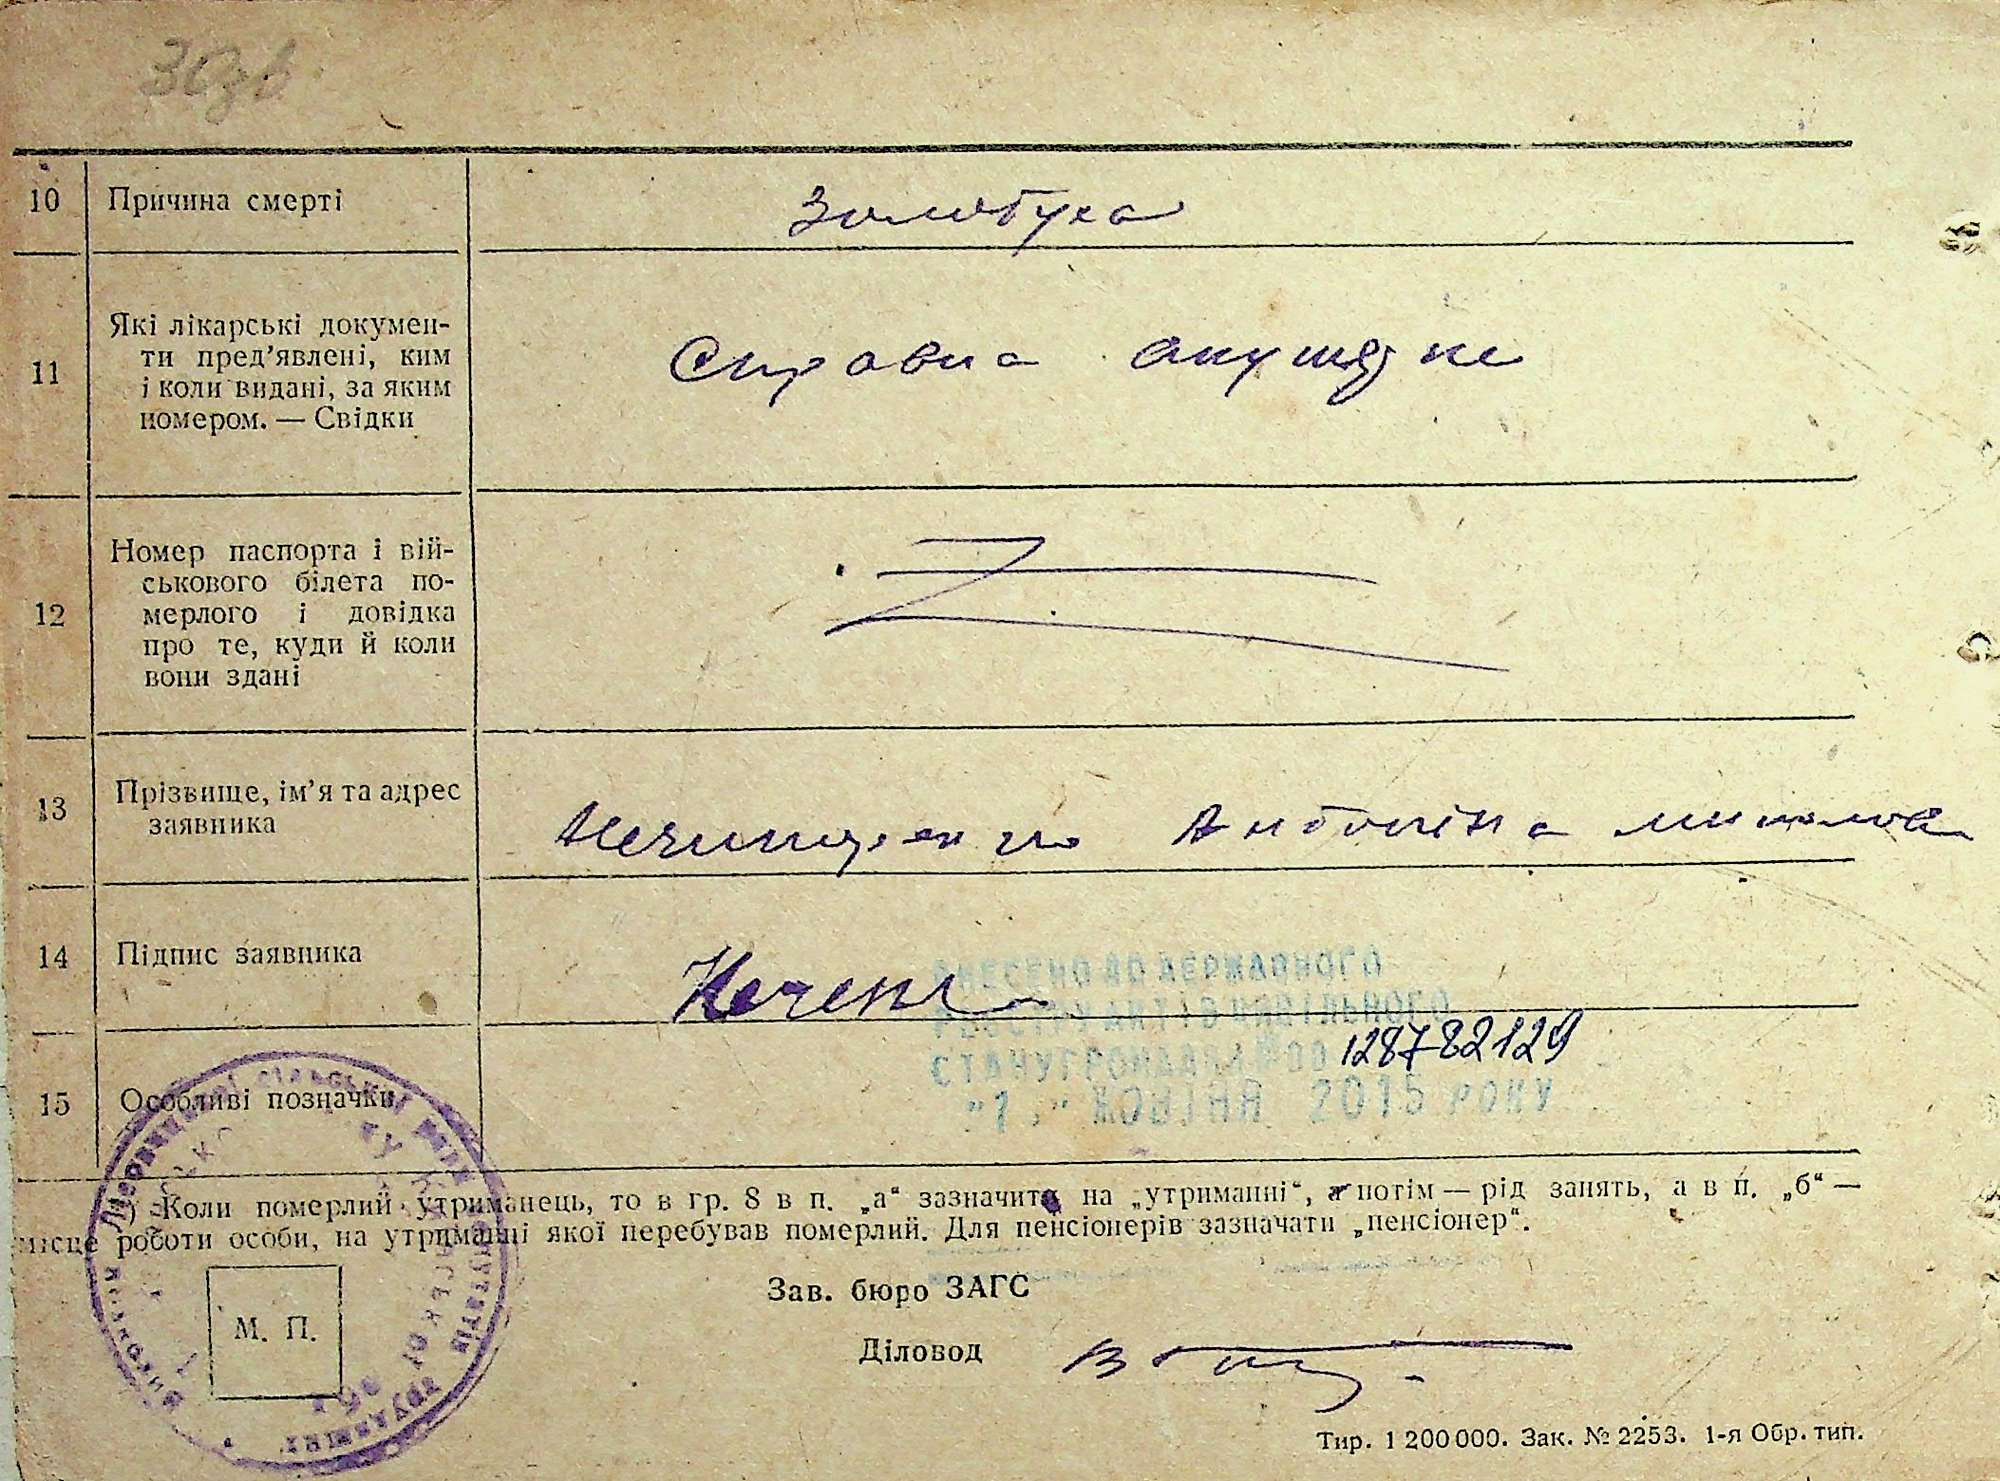 10 Причина смерті Золотуха
11 Які лікарські докумен-
ти пред’явлені, ким
і коли видані, за яким
номером. — Свідки
Справка акушерке
12 Номер паспорта і вій-
ськового білета по-
мерлого і довідка
про те, куди й коли
вони здані
13 Прізвище, ім’я та адрес
заявника
Нечипоренко Антоніна
14 Підпис заявника
ВНЕСЕНО ДО ДЕРЖАВНОГО
РЕЄСТРУ АКТІВ ЦИВІЛЬНОГО
СТАНУ ГРОМАДЯН № 00 128782129
"1" ЖОВТНЯ 2015 РОКУ
15 Особливі позначки
*) Коли померлий утриманець, то в гр. 8 в п. „а“ зазначити на „утриманні“, а потім — рід занять, а в п. „б“ —
місце роботи особи, на утриманні якої перебував померлий. Для пенсіонерів зазначати „пенсіонер“.
Зав. бюро ЗАГС
М. П.
Діловод
Тир. 1 200 000. Зак. № 2253. 1-я Обр. тип.